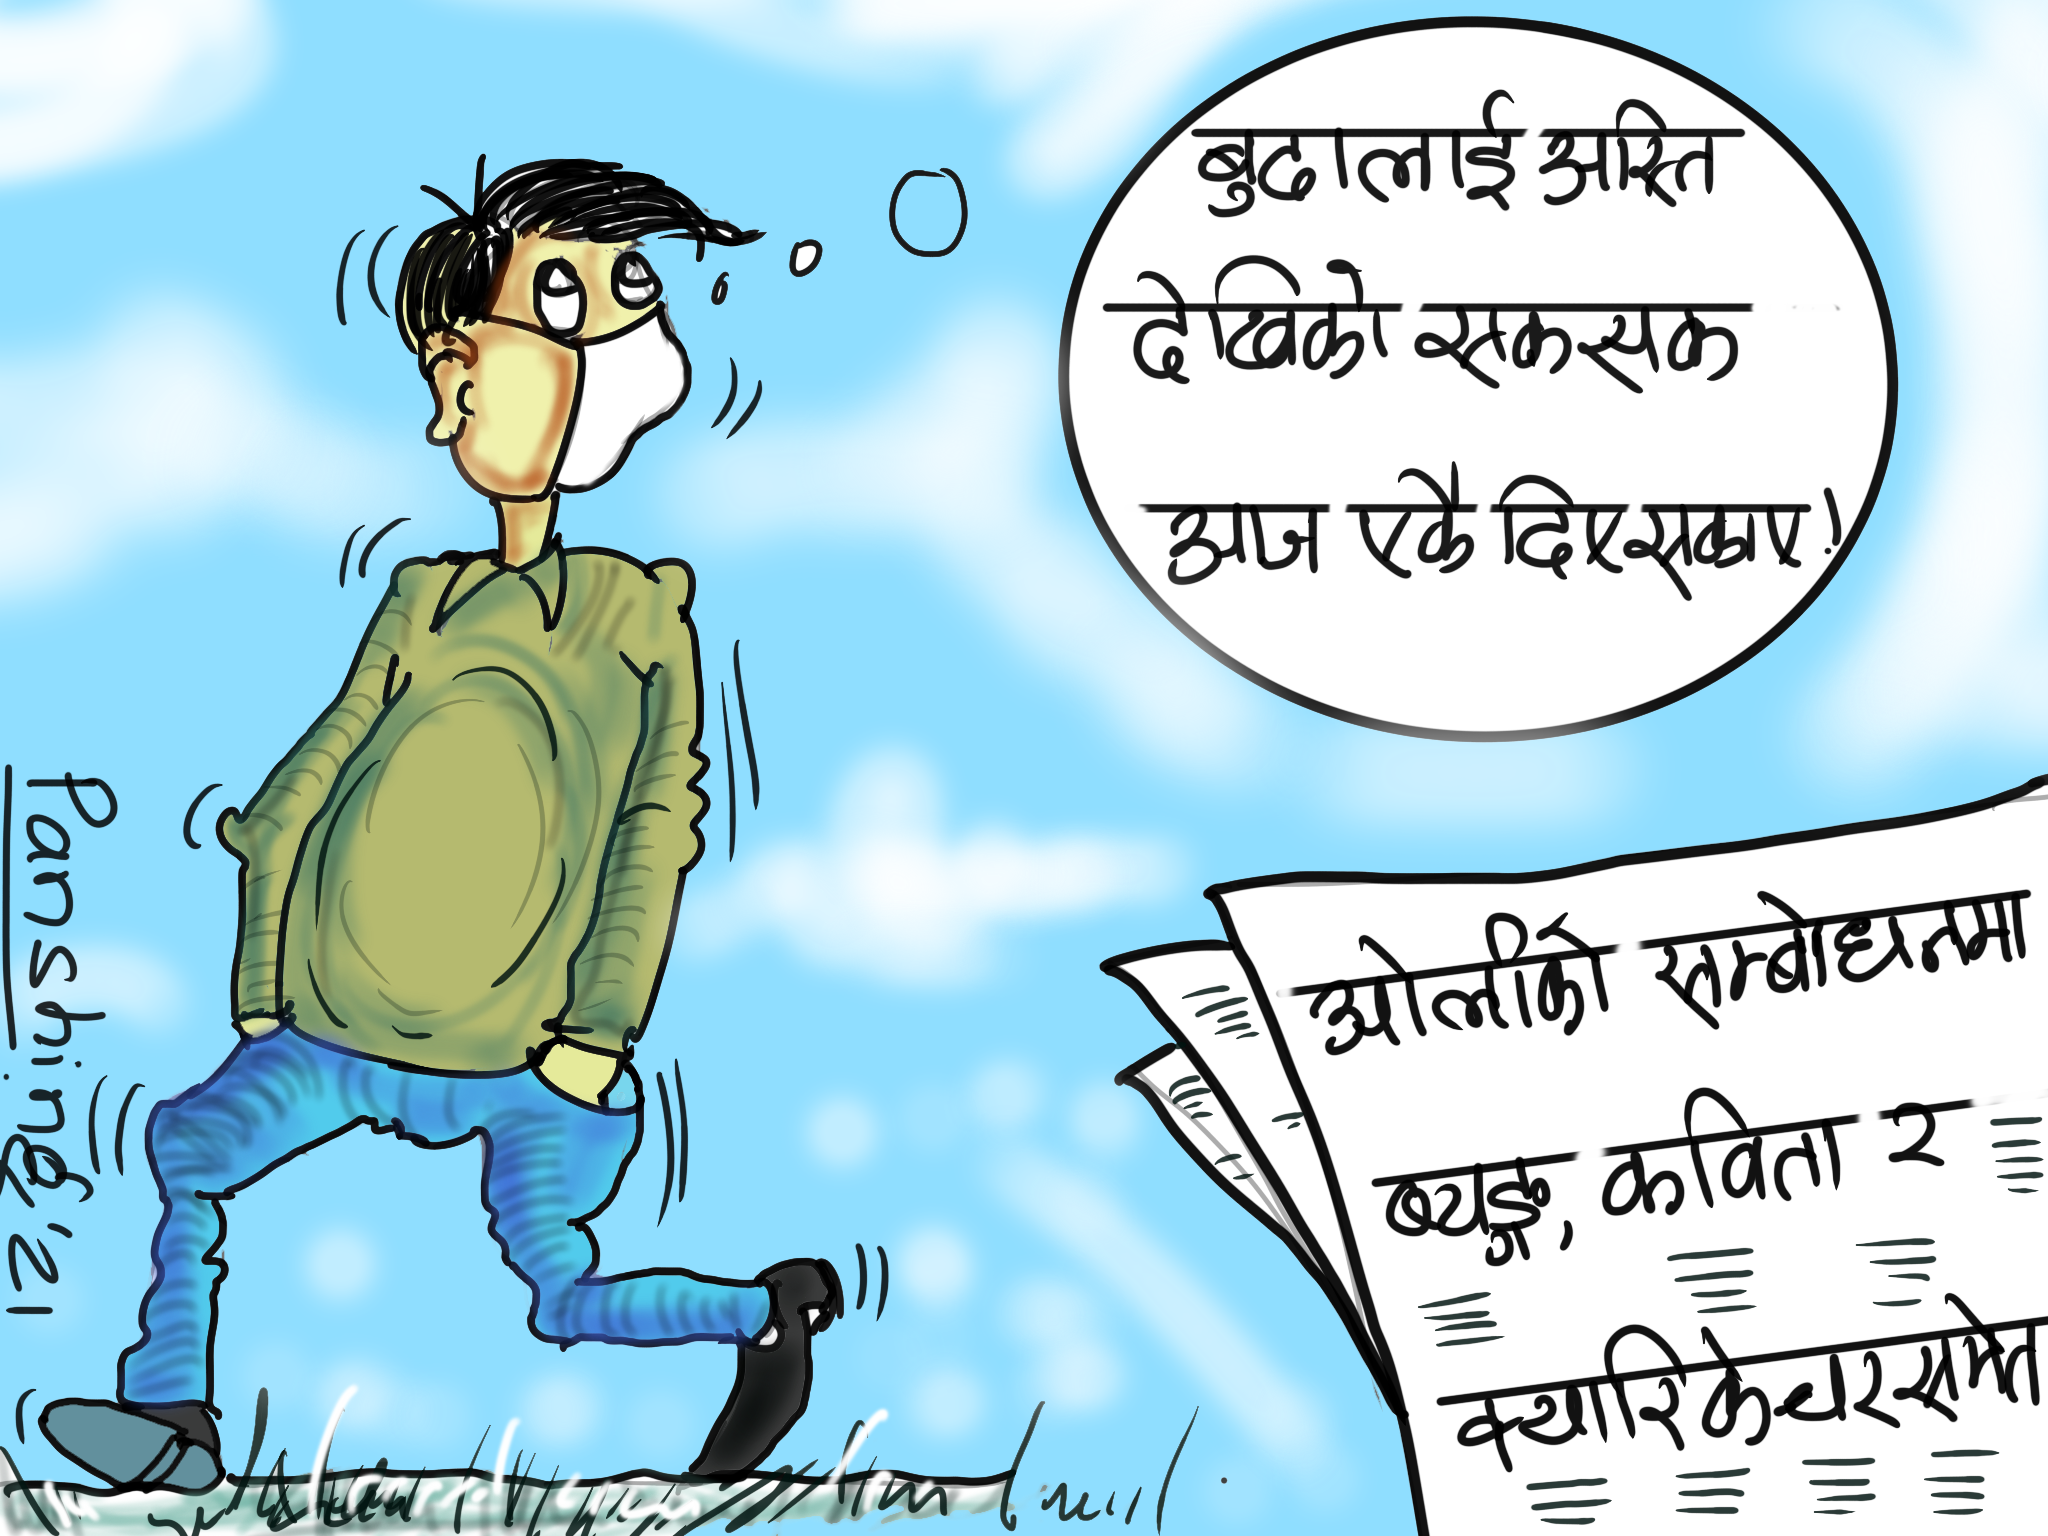 बुढालाई अस्ति
देखिको सकसक
आज एकै दिए सकाए!
ओलीको सम्बोधनमा
ब्यङ्ग, कविता र
क्यारिकेचर समेत
Panshing, '21